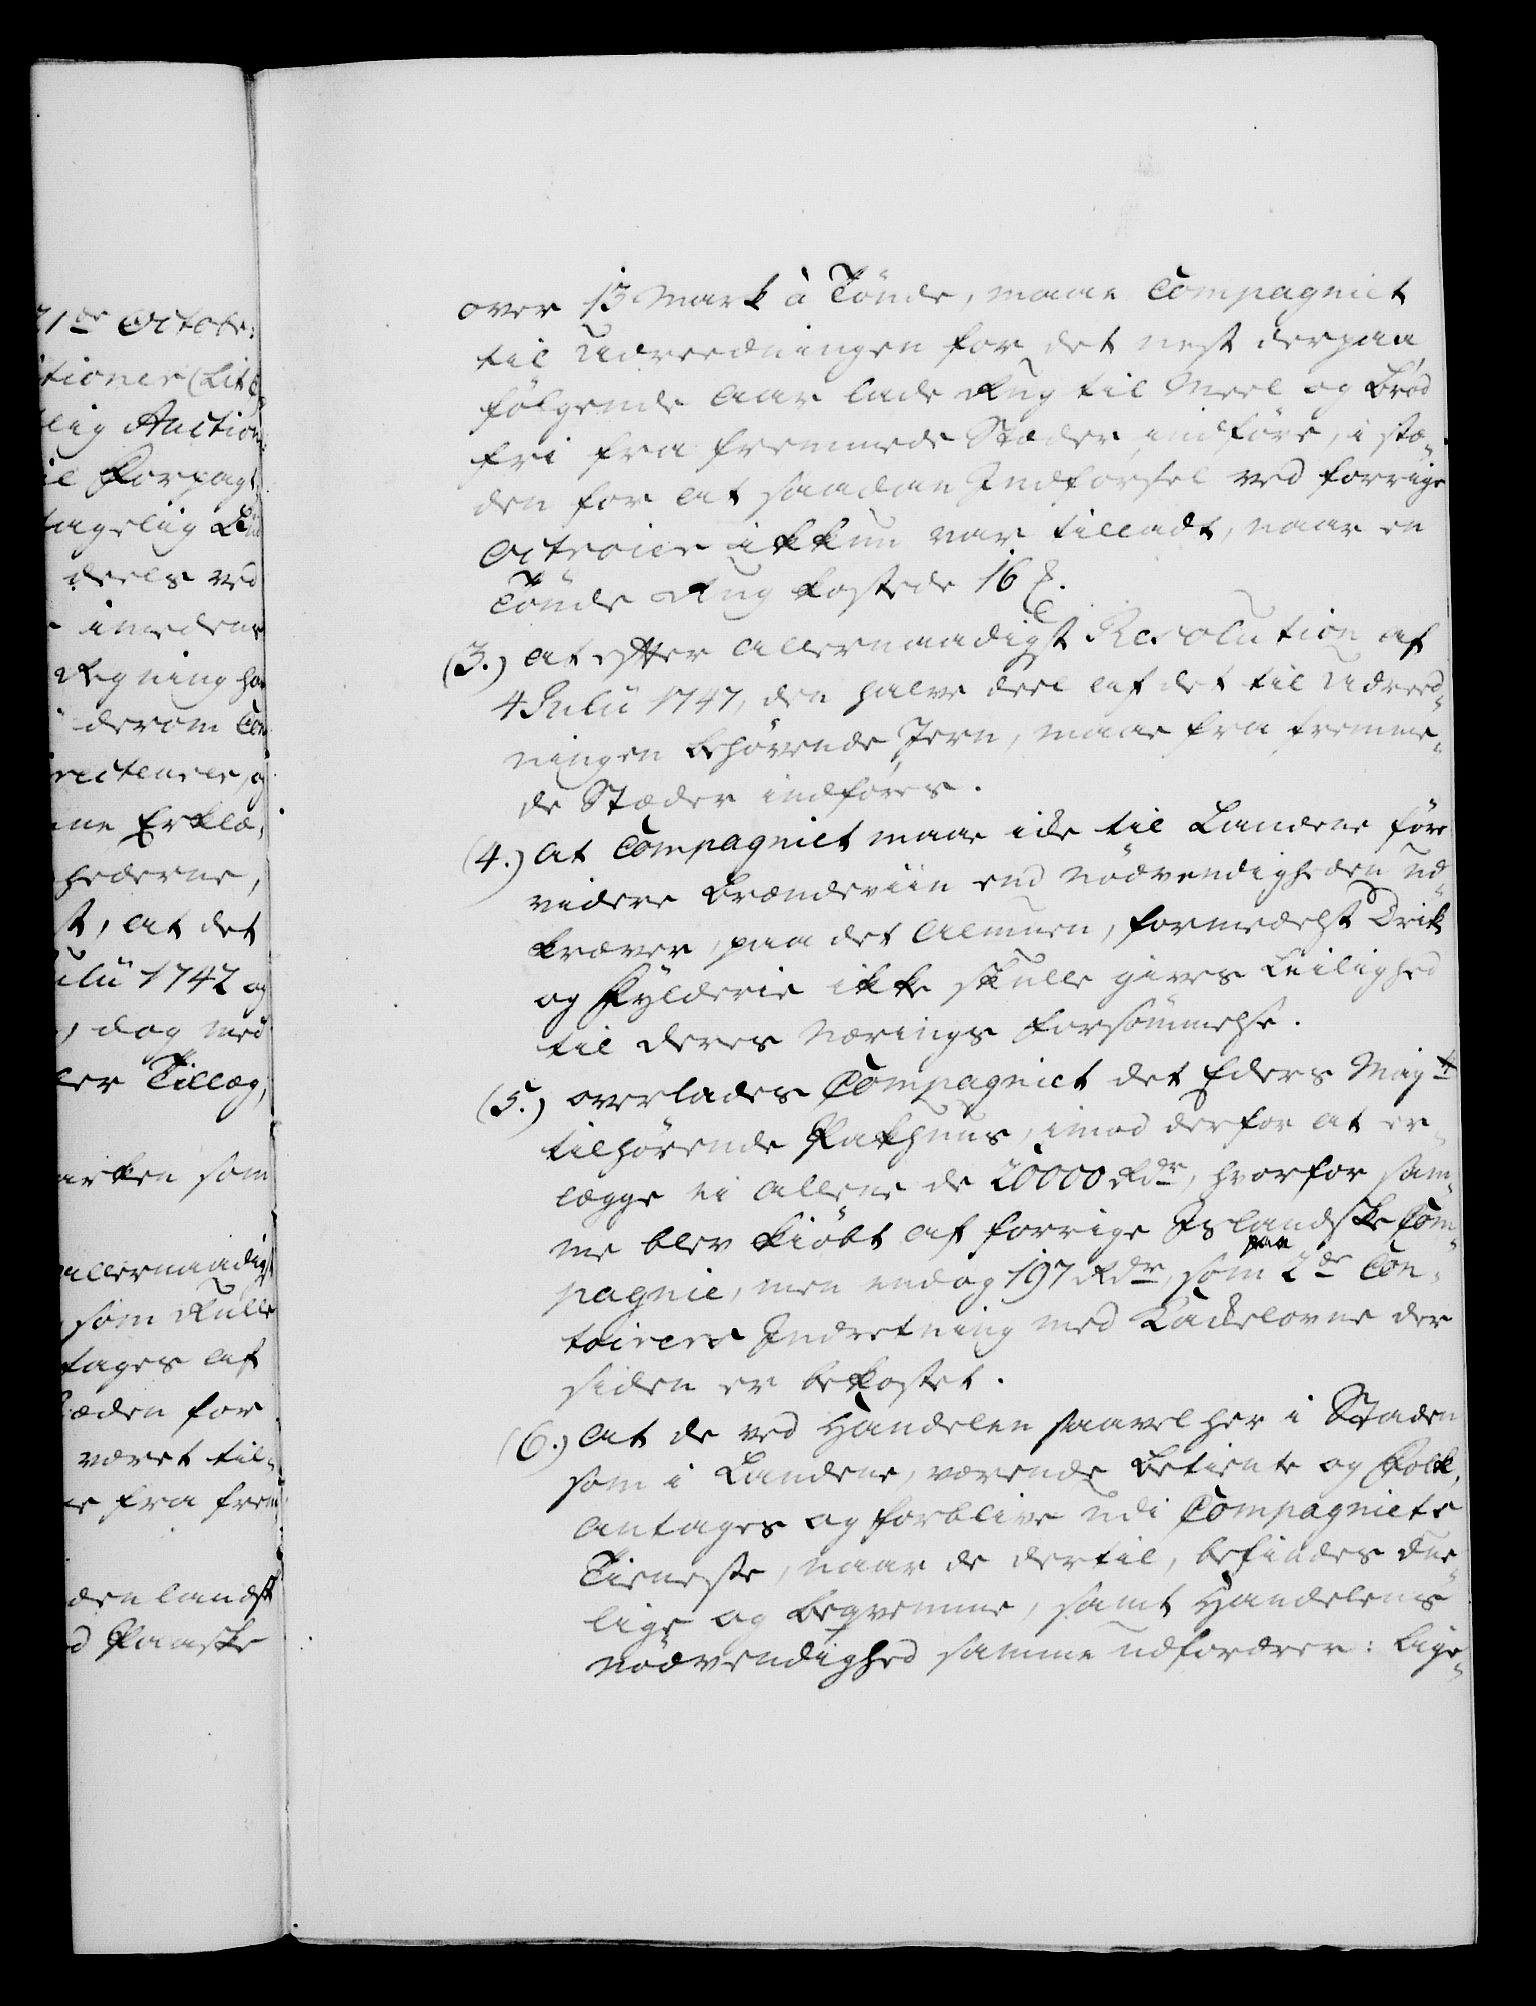 21de Octobr:
tioner (Lit C
lig Auction
il Forpagt
tagelig
deels ved
imedens
Regning ha
derom Con
recteurer, og
ne Erklæ,
hederne,
st, at det
ulii 1742 og
, dog med
ler Tillæg,
arken som
allernaadigst
som Kulle
tages af
læden for
været til,
e fra frem
den landsk
d Paaske
over 13 Mark à Tönde, maae Compagniet
til Udreedningen for det nest derpaa,
følgende Aar lade Rug til Meel og Brød
fri fra fremmede Stæder indføre, i stæ,
den for at saadan Indførsel ved forrige
Octroier ikkun var tilladt, naar en
Tönde Rug kostede 16 ₰.
(3.) at efter allernaadigst Resolution af
4 Julii 1747, den halve deel af det til Udreed,
ningen behøvende Jern, maae fra fremme,
de Stæder indføres.
(4.) at Compagniet maae icke til Landene føre
videre Brændeviin end nødvendigheden ud,
kræver, paa det Almuen, formedelst Drik
og Fylderie ikke skulle gives Leilighed
til deres Nærings forsømmelse.
(5.) overlades Compagniet det Eders Mayt
tilhørende Pakhuus, imod derfor at er,
lægge ei allene de 20000 Rdr, hvorfor sam,
me blev kiøbt af forrige Islandske Com,
pagnie, men endog 197 Rdr, som paa 2de Con,
toirers Indretning med Kackelovne der
siden er bekostet.
(6.) at de ved Handelen saavel her i Staden
som i Landene, værende Betiente og Folk,
antages og forblive udi Compagniets
Tieneste, naar de dertil, befindes due,
lige og beqvemme, samt Handelens
nødvendighed samme udfordrer: lige,